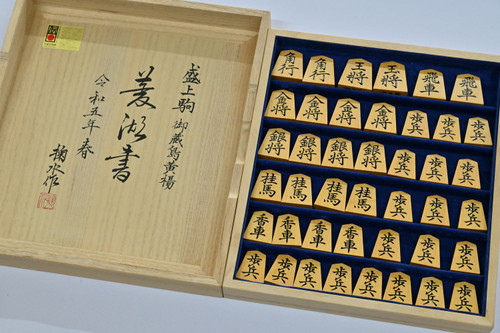 盛上駒 御蔵島黄楊
菱湖書
令和五年 春
掬水作
角行 角行 王将 王将 飛車 飛車
金将 金将 金将 金将 歩兵 歩兵 歩兵
銀将 銀将 銀将 銀将 歩兵 歩兵 歩兵
桂馬 桂馬 桂馬 桂馬 歩兵 歩兵 歩兵
香車 香車 香車 香車 歩兵 歩兵 歩兵
歩兵 歩兵 歩兵 歩兵 歩兵 歩兵 歩兵 歩兵